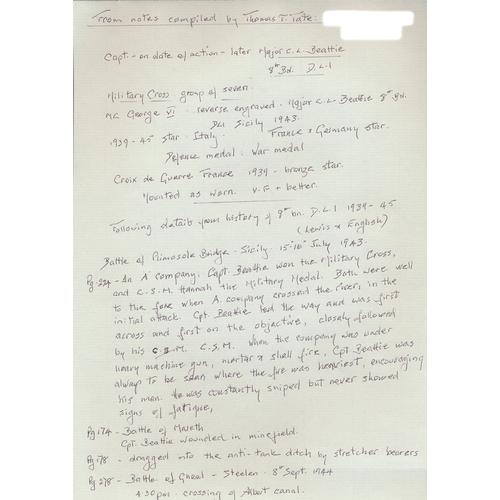 From notes compiled by Thomas T. Tate:
Capt - on date of action - later Major C. L. Beattie
8th Bn. D.L.I
Military Cross group of seven.
MC George VI reverse engraved. Major C. L. Beattie 8th Bn.
DLI Sicily 1943.
1939-45 star. Italy. France & Germany star.
Defence medal. War medal
Croix de Guerre France 1939 - bronze star.
Mounted as worn. V.F + better.
Following details from history of 8th bn. D.L.I 1939-45
(Lewis & English)
Battle of Primasole Bridge - Sicily. 15-16th July 1943.
Pg. - In A company, Capt. Beattie won the Military Cross,
and C.S.M. Hannah the Military Medal. Both were well
to the fore when A. company crossed the river, in the
initial attack. Cpt Beattie led the way and was first
across and first on the objective, closely followed
by his C.S.M. When the company was under
heavy machine gun, mortar & shell fire, Cpt Beattie was
always to be seen where the fire was heaviest, encouraging
his men. He was constantly sniped but never showed
signs of fatigue,
Pg 174 - Battle of Mareth
Cpt. Beattie wounded in minefield.
Pg 178 - dragged into the anti-tank ditch by stretcher bearers
Pg 278 - Battle of Gheel - Steelen. 8th Sept. 1944
4.30pm. crossing of Albert canal.